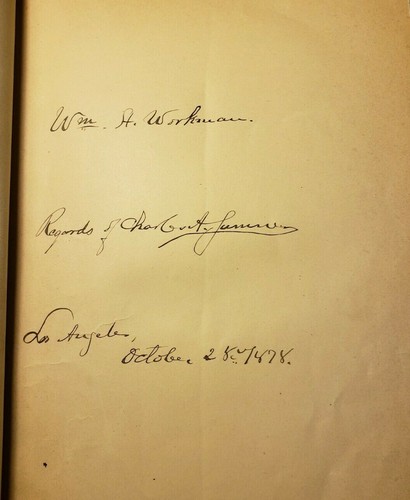 Wm. H. Workman.
Regards of Charles A. Sumner
Los Angeles,
October 28th/1878.